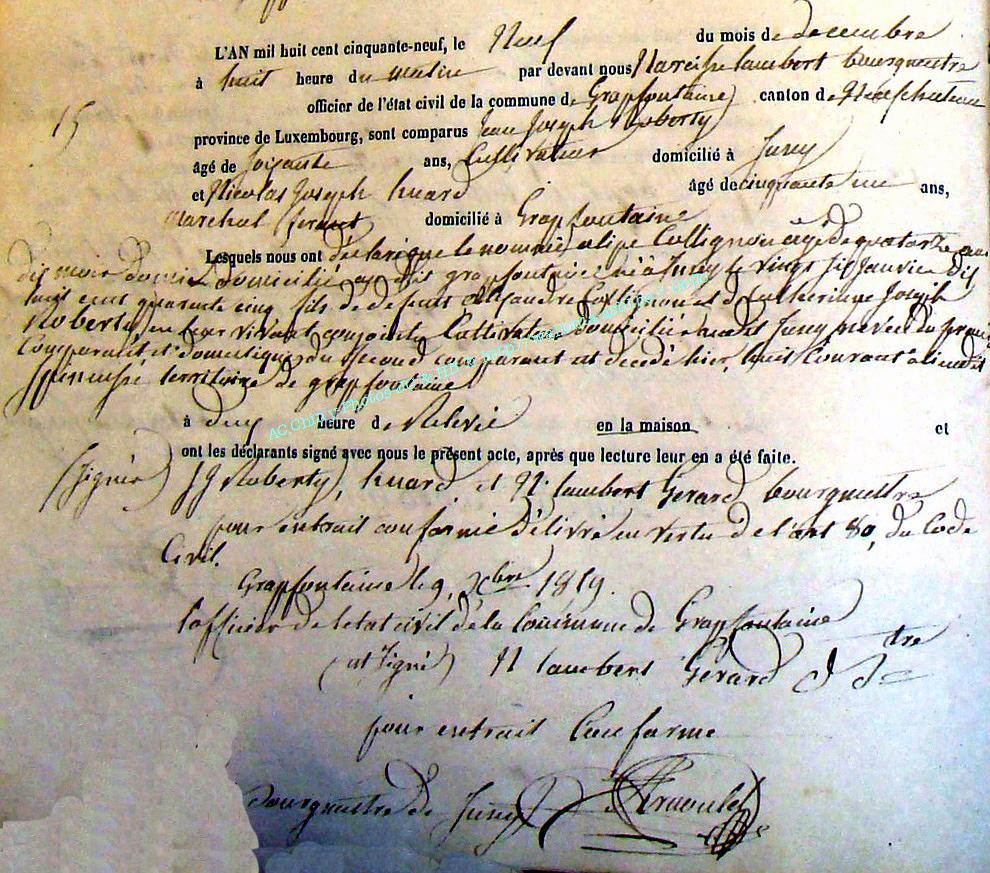 L'AN mil huit cent cinquante-neuf, le Neuf du mois de decembre
à huit heure du matin par devant nous Narcisse lambert bourgmestre
officier de l'état civil de la commune de Grapfontaine canton de Neufchateau
15
province de Luxembourg, sont comparus Jean Joseph Roberty
âgé de soixante ans, Cultivateur domicilié à Juzey
et Nicolas Joseph huard âgé de cinquante un ans,
Marechal ferrant domicilié à Grapfontaine
Lesquels nous ont déclaré que le nommé alipe Collignon agé de quatorze ans
dix mois domicilié au dit grapfontaine né à Juzey le vingt six Janvier dix
huit cent quarante cinq fils de défunts Collignon et de Catherine Joseph
Roberty en leur vivant conjoints Cultivateurs domiciliés au dit Juzey neveu du premier
Comparant et domestique du second comparant est decédé hier, huit Courant
territoire de grapfontaine
à deux heure de Relevée en la maison et
ont les déclarants signé avec nous le présent acte, après que lecture leur en a été faite.
(Signé) JJ Roberty, huard et N. lambert Gerard bourgmestre
pour extrait conforme délivré en vertu de l'art 80, du Code
Civil.
Grapfontaine le 9, Xbre 1859.
l'officier de l'etat civil de la Commune de Grapfontaine
(est signé) N lambert Gerard
pour extrait Conforme
bourgmestre de Juzey
AC Chiny Photos